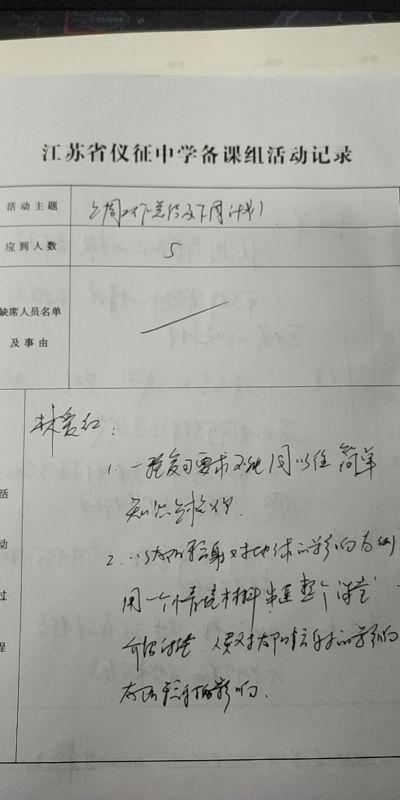 江苏省仪征中学备课组活动记录
活动主题 上周工作总结及下周计划
应到人数 5
缺席人员名单
及事由
活动过程
林爱红:
1. 一轮复习要求不能同以往简单
知识点梳理.
2. 以太阳辐射对地球的影响为例
用一个情境材料串连整个课堂
太阳辐射的影响.